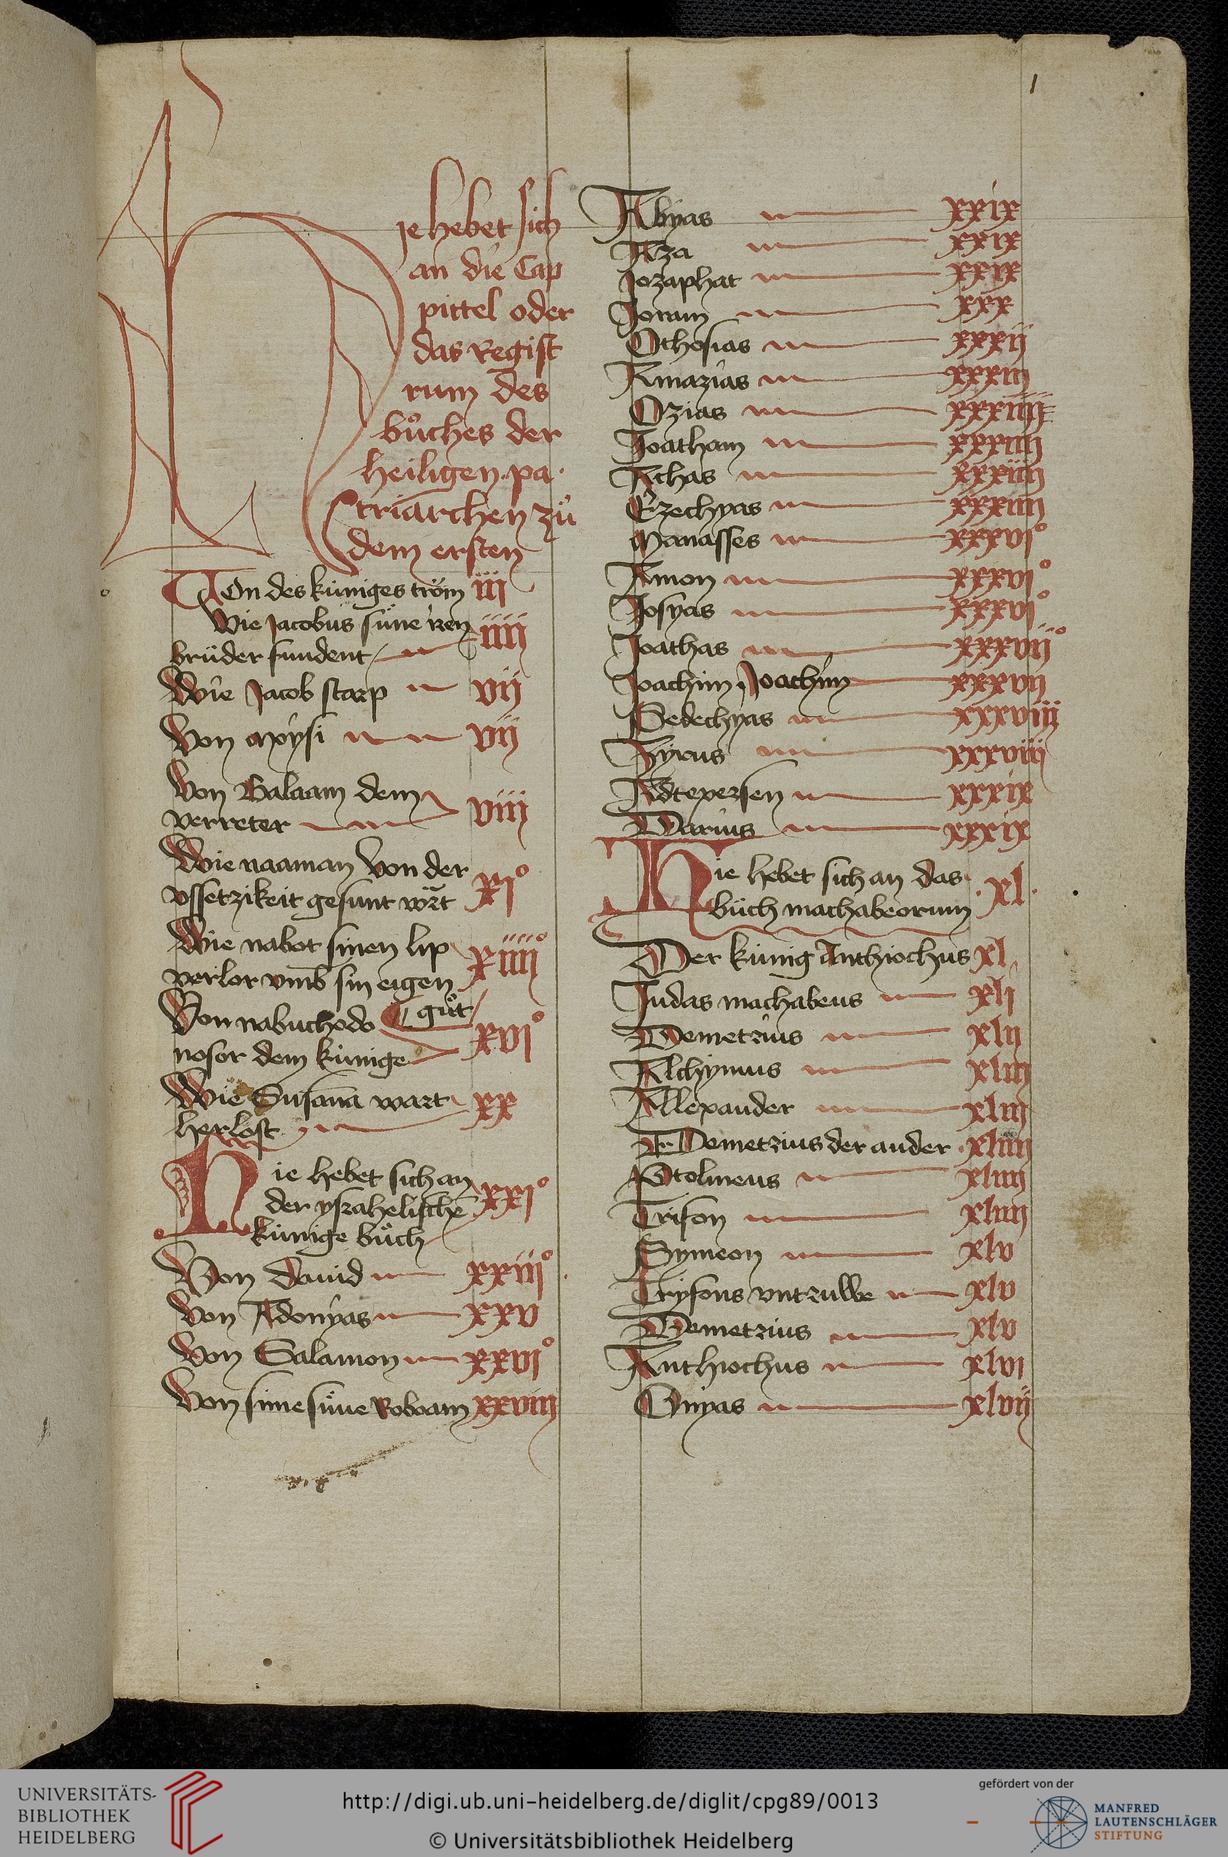 1
Hie hebet sich
an die Cap
pittel oder
das Regist
rum des
bůches der
heiligen pa
triarchen zů
dem ersten
Von des küniges tröm iii
Wie Jacobus süne iren
brüder fundent iiii
Wie Jacob starp vij
Von moysi vij
Von Balaam dem
verreter viii
Wie naaman von der
vssetzikeit gesunt wart xi°
Wie nabot sinen lip
verlor vmb sin eigen xiiii°
gůt
Von nabuchodo
nosor dem künige xvi°
Wie Susana wart
herlost xx
Hie hebet sich an
der ysrahelischē
künige bůch xxi°
Von Dauid xxiii°
Von Adonyas xxv
Von Salamon xxvi°
Von sime süne Roboam xxviii
Abyas xxix
Aza xxix
Jozaphat xxix
Joram xxx
Othosias xxxij
Amazias xxxiii
Ozias xxxiiij
Joatham xxxiiii
Achas xxxiiii
Ezechyas xxxiiii
Manasses xxxvi°
Amon xxxvi°
Josyas xxxvi°
Joathas xxxvij°
Joachim Joachim xxxvij
Sedechyas xxxviii
Zyrus xxxviii
Adtexersen xxxix
Darius xxxix
Hie hebet sich an das
bůch machabeorum xl
Der künig Anthiochus xl
Judas machabeus xli
Demetrius xlii
Alchymus xliii
Allexander xliii
Demetrius der ander xliiii
Ptolmeus xliiii
Trifon xliiii
Symeon xlv
Tryfons vntruwe xlv
Demetrius xlv
Anthiochus xlvi
Onyas xlvij
UNIVERSITÄTS-
BIBLIOTHEK
HEIDELBERG
http://digi.ub.uni-heidelberg.de/diglit/cpg89/0013
© Universitätsbibliothek Heidelberg
gefördert von der
MANFRED
LAUTENSCHLÄGER
STIFTUNG